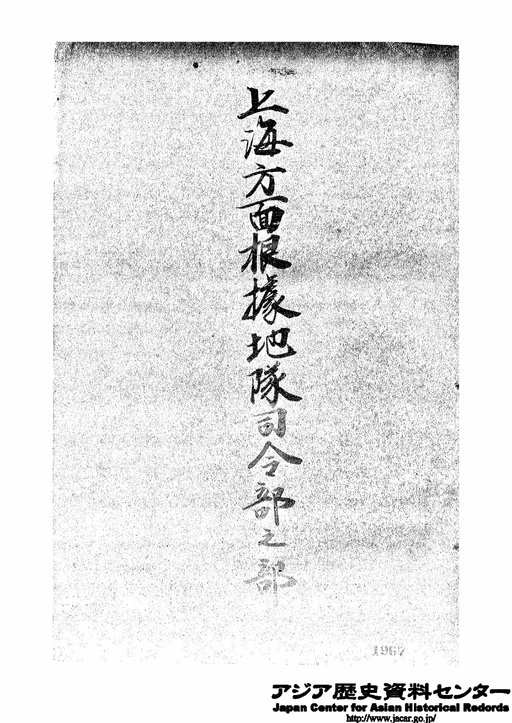 上海方面根據地隊司令部之部
1967
アジア歴史資料センター
Japan Center for Asian Historical Redords
http://www.jacar.go.jp/